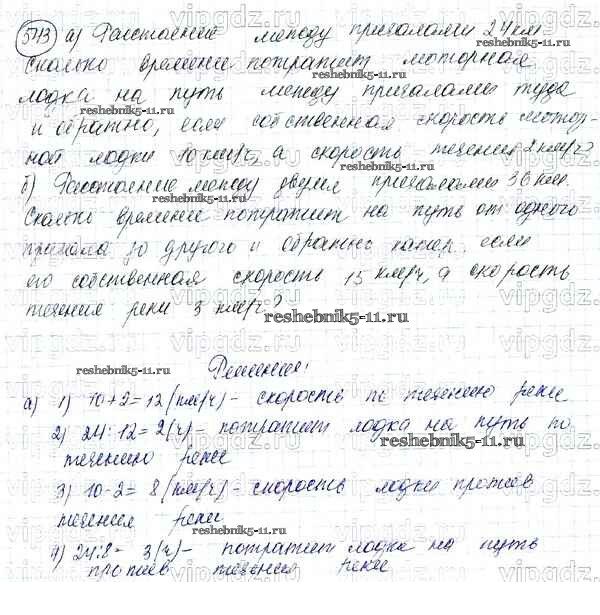 543 а) Расстояние между причалами 24 км.
Сколько времени потратит моторная
лодка на путь между причалами туда
и обратно, если собственная скорость мотор-
ной лодки 10 км/ч, а скорость течения 2 км/ч?
б) Расстояние между двумя причалами 36 км.
Сколько времени потратит на путь от одного
причала до другого и обратно катер, если
его собственная скорость 15 км/ч, а скорость
течения реки 3 км/ч?
Решения:
а) 1) 10+2=12 (км/ч) - скорость по течению реки
2) 24:12=2(ч) - потратит лодка на путь по
течению реки
3) 10-2= 8 (км/ч) - скорость лодки против
течения реки
4) 24:8= 3(ч) - потратит лодка на путь
против течения реки
vipgdz.com
reshebnik5-11.ru
reshebnik5-11.ru
reshebnik5-11.ru
reshebnik5-11.ru
reshebnik5-11.ru
reshebnik5-11.ru
reshebnik5-11.ru